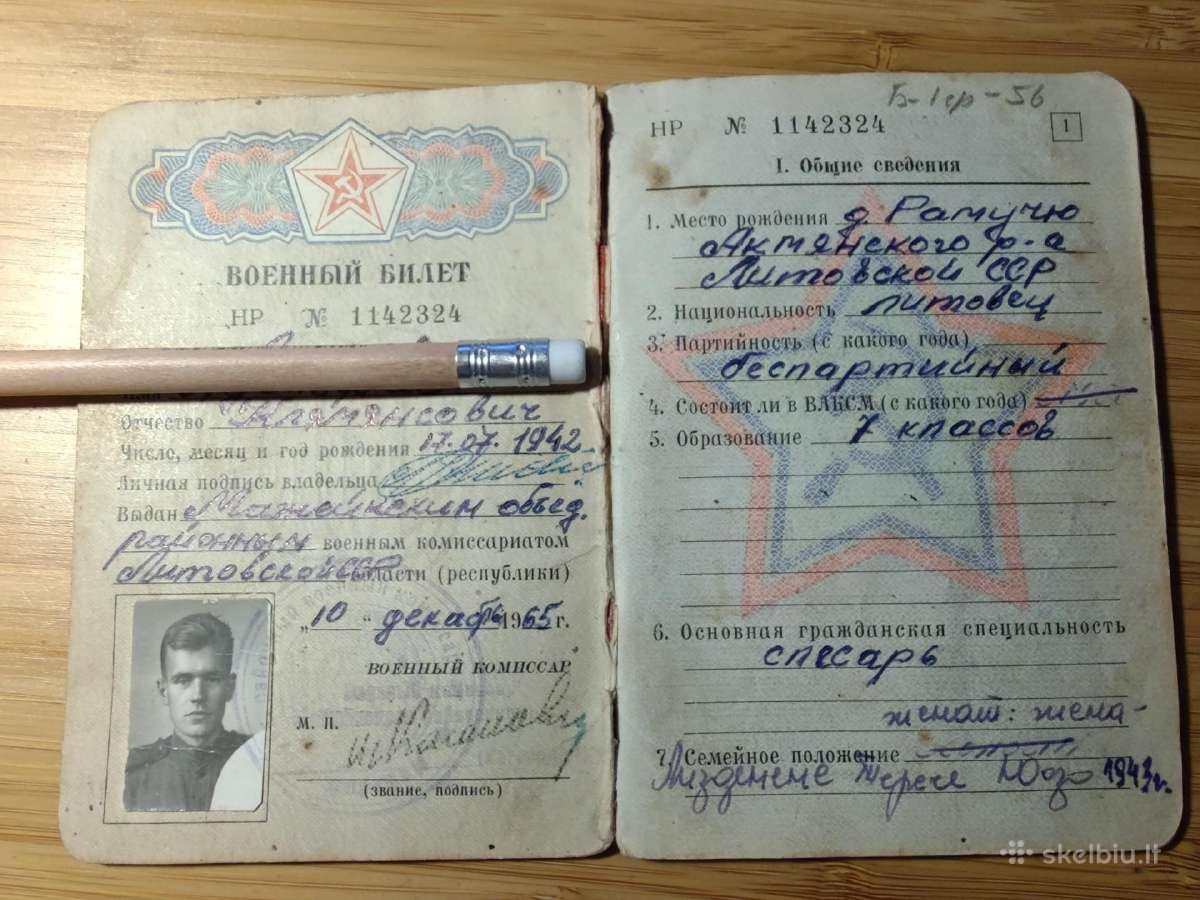 ВОЕННЫЙ БИЛЕТ
НР № 1142324
Отчество
Число, месяц и год рождения 17.07.1942
Личная подпись владельца
Выдан Мажейкским объед.
районным военным комиссариатом
Литовской ССР области (республики)
„10“ декабрь 1965 г.
ВОЕННЫЙ КОМИССАР
М. П.
(звание, подпись)
Б-1ср-56
НР № 1142324
1
I. Общие сведения
1. Место рождения д. Рамучю
Актянского р-а
Литовской ССР
2. Национальность литовец
3. Партийность (с какого года)
беспартийный
4. Состоит ли в ВЛКСМ (с какого года)
5. Образование 7 классов
6. Основная гражданская специальность
слесарь
женат: жена-
7. Семейное положение
1943г.
skelbiu.lt